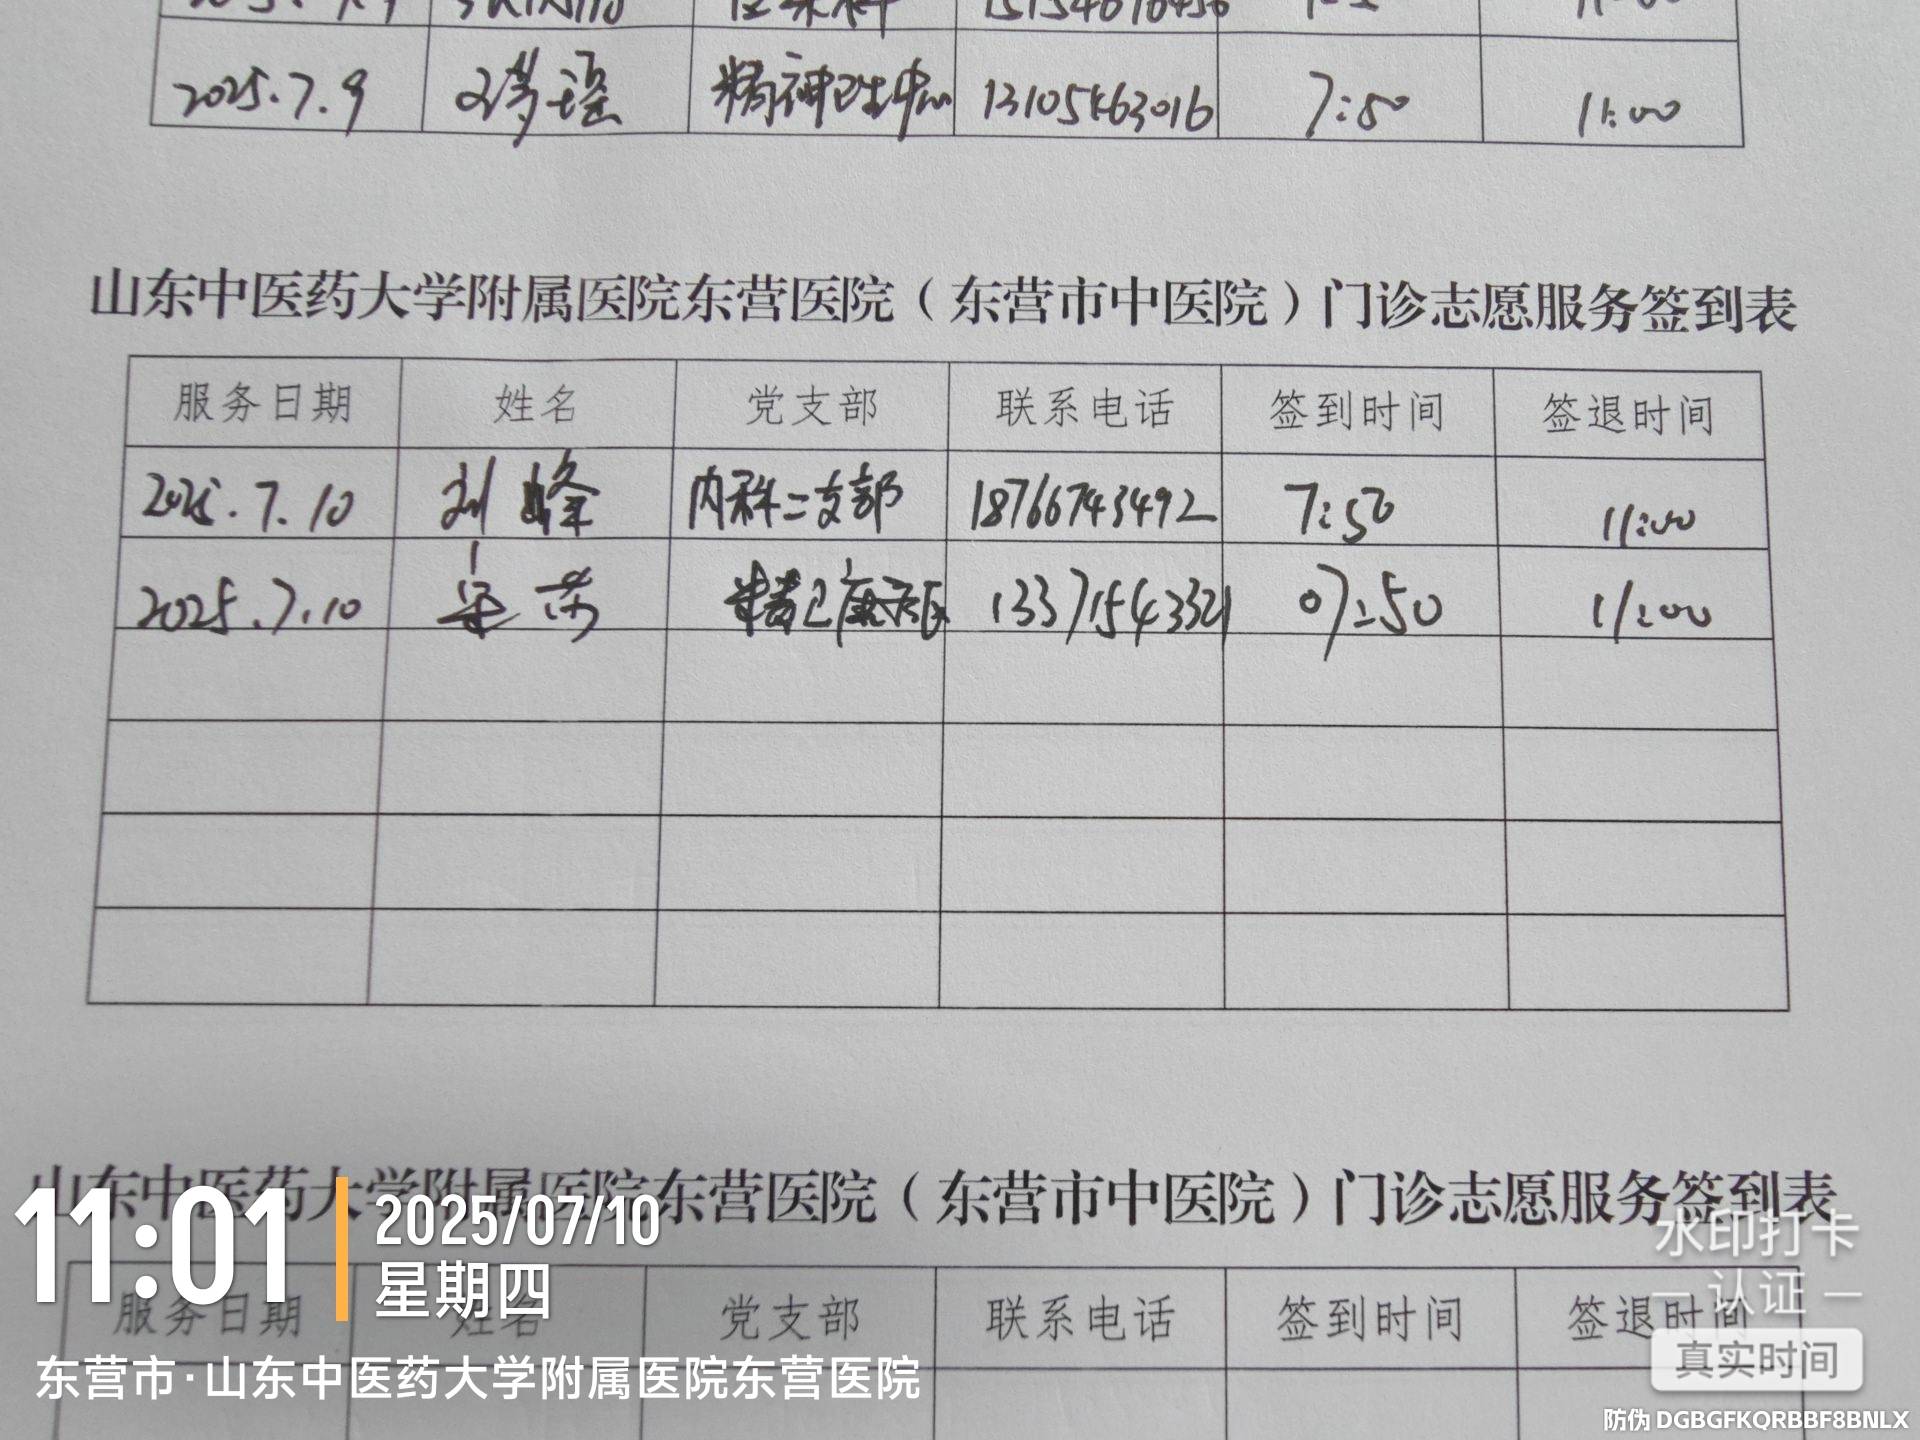 2025.7.9 精神卫生中心 13105463016 7:50 11:00
山东中医药大学附属医院东营医院（东营市中医院）门诊志愿服务签到表
服务日期 姓名 党支部 联系电话 签到时间 签退时间
2025.7.10 刘峰 内科二支部 18766743492 7:50 11:00
2025.7.10 13371543321 07:50 11:00
山东中医药大学附属医院东营医院（东营市中医院）门诊志愿服务签到表
服务日期 姓名 党支部 联系电话 签到时间 签退时间
11:01
2025/07/10
星期四
东营市·山东中医药大学附属医院东营医院
水印打卡
认证
真实时间
防伪 DGBGFKQRBBF8BNLX